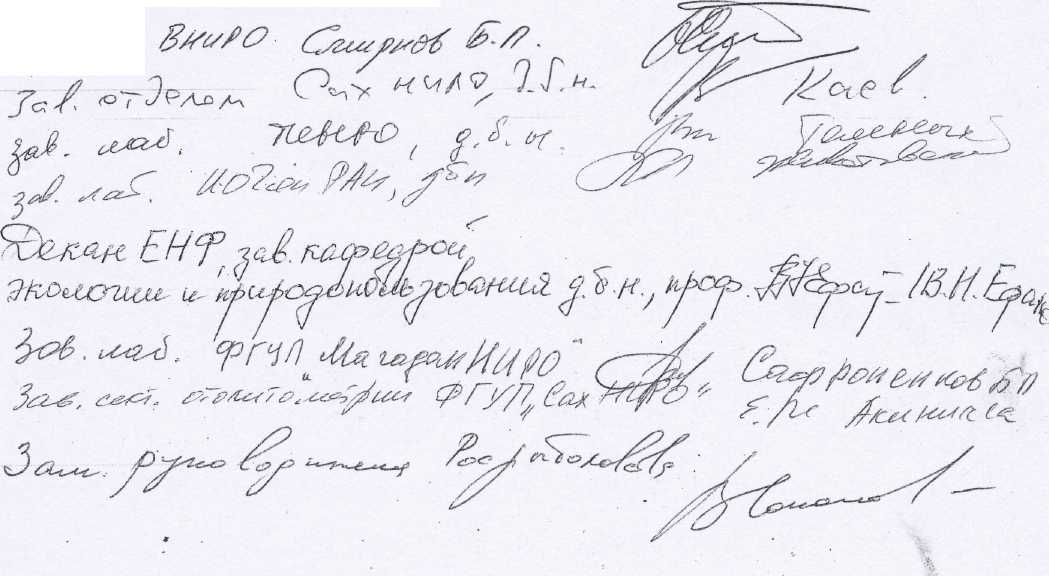 ВНИРО Смирнов Б.П.
Зав. отделом СахНИРО, д.б.н. Каев.
Зав. лаб. д.б.н.
зав. лаб. РАН, дбн
Декан ЕНФ, зав. кафедрой
экологии и природопользования д.б.н., проф. /В.Н. Ефанов
Зав. лаб. ФГУП "МагаданНИРО" Сафроненков БП
Зав. сект. отолитометрии ФГУП "СахНИРО" Акиничева
Зам. руководителя Росрыболовства